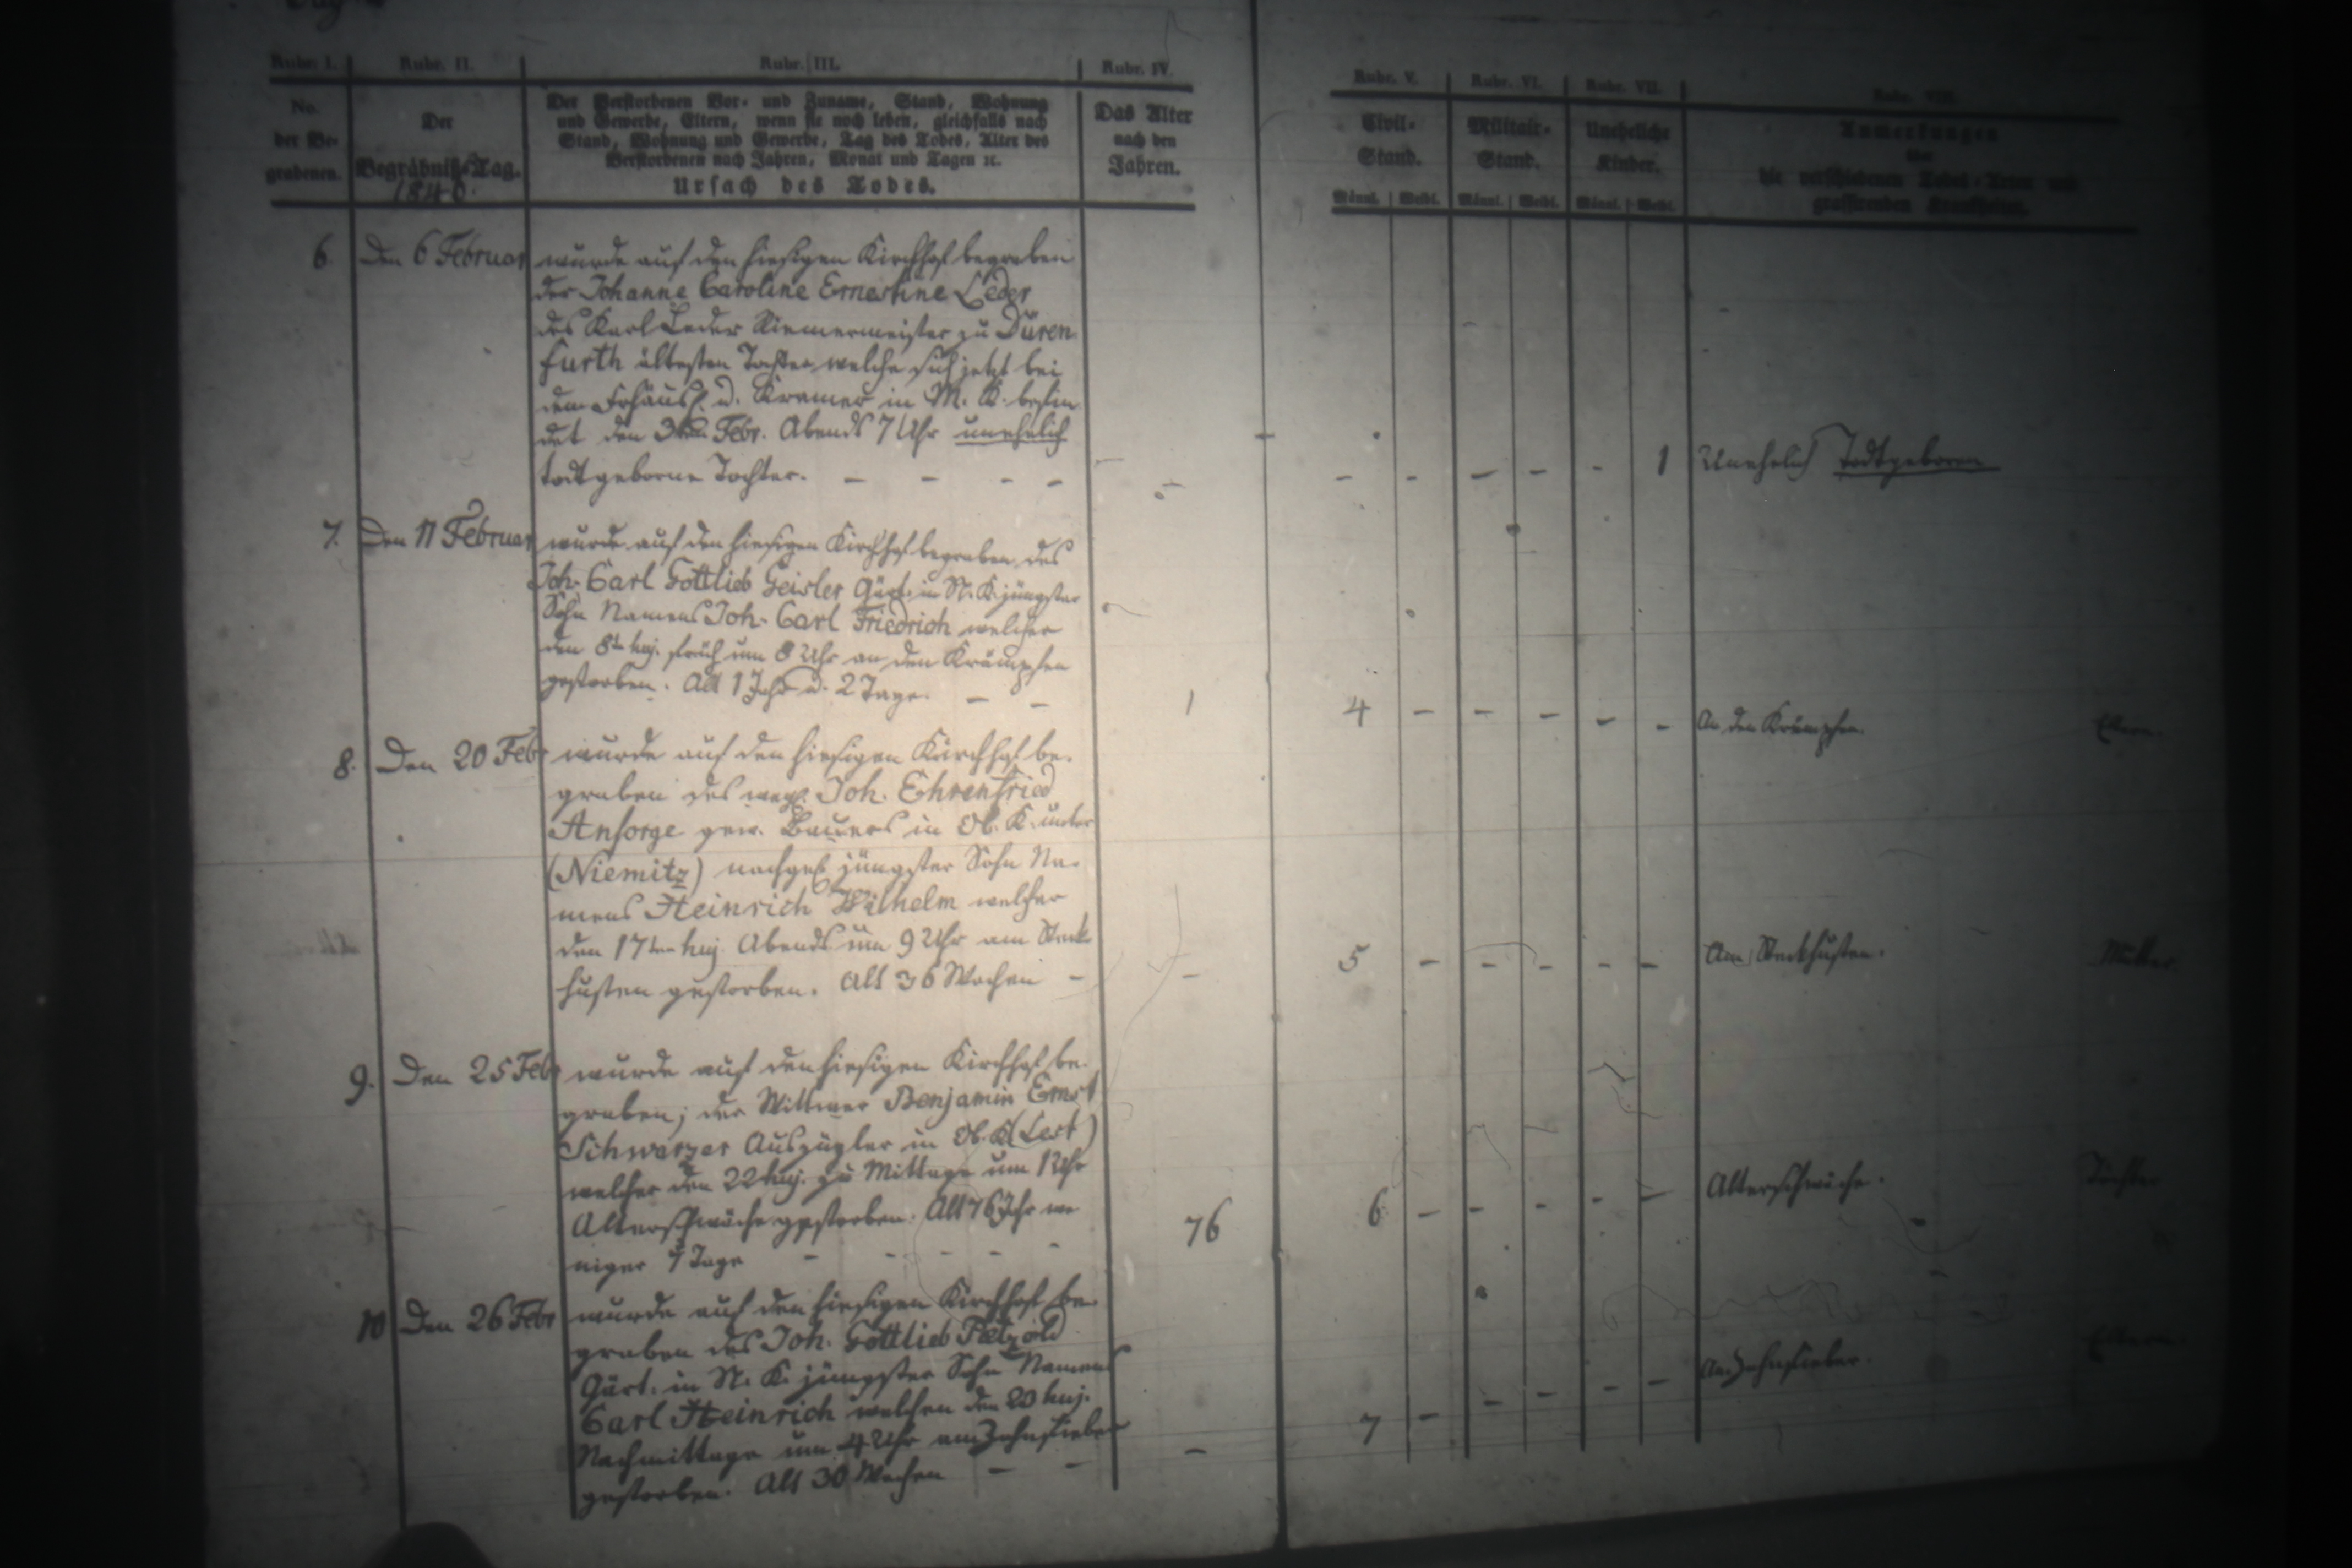 Rubr. I.
Rubr. II.
Rubr. III.
Rubr. IV.
Rubr. V.
Rubr. VI.
Rubr. VII.
Rubr. VIII.
No.
der Be-
grabenen.
Der
Begräbniß-Tag.
1840.
Der Verstorbenen Vor- und Zuname, Stand, Wohnung
und Gewerbe, Eltern, wenn sie noch leben, gleichfalls nach
Stand, Wohnung und Gewerbe, Tag des Todes, Alter des
Verstorbenen nach Jahren, Monat und Tagen ꝛc.
Ursach des Todes.
Das Alter
nach den
Jahren.
Civil-
Stand.
Männl. Weibl.
Militair-
Stand.
Männl. Weibl.
Uneheliche
Kinder.
Männl. Weibl.
Anmerkungen
über
die verschiedenen Todes-Arten und
grassirenden Krankheiten.
6. Den 6 Februar
wurde auf den hiesigen Kirchhof begraben
der Johanne Caroline Ernestine Leder
des Karl Leder Riemermeister zu Düren
furth ältesten Tochter welche sich jetzt bei
dem Frhäusl. u. Kramer in M. K. befin
det den 3ten Febr. Abends 7 Uhr unehelich
todtgeborne Tochter. - - - -
- - - - - - 1 Unehelich Todtgeboren
7. Den 11 Februar
wurde auf den hiesigen Kirchhof begraben des
Joh. Carl Gottlieb Geisler Gärt. in N. K. jüngster
Sohn Namens Joh. Carl Friedrich welcher
den 8ten huj. früh um 8 Uhr an den Krämpfen
gestorben. Alt 1 Jahr u. 2 Tage. - -
1 4 - - - - - An den Krämpfen. Eltern.
8. Den 20 Febr
wurde auf den hiesigen Kirchhof be-
graben des Joh. Ehrenfried
Ansorge gew. Bauers in Ob. K. unter
(Niemitz) nachgel. jüngster Sohn Na-
mens Heinrich Wilhelm welcher
den 17ten huj. Abends um 9 Uhr am Steck
husten gestorben. Alt 36 Wochen -
- 5 - - - - - Am Steckhusten. Mutter.
9. Den 25 Febr
wurde auf den hiesigen Kirchhof be-
graben; der Wittwer Benjamin Ernst
Schwarzer Auszügler in Ob. K. (Lest)
welcher den 22 huj. zu Mittage um 1 Uhr
Altersschwäche gestorben. Alt 76 Jahr we
niger 7 Tage - - - - -
76 6 - - - - - Altersschwäche. Töchter
10 Den 26 Febr
wurde auf den hiesigen Kirchhof be-
graben des Joh. Gottlieb Pätzold
Gärt. in N. K. jüngster Sohn Namens
Carl Heinrich welcher den 20 huj.
Nachmittage um 4 Uhr am Zahnfieber
gestorben. Alt 30 Wochen - -
- 7 - - - - - Am Zahnfieber. Eltern.